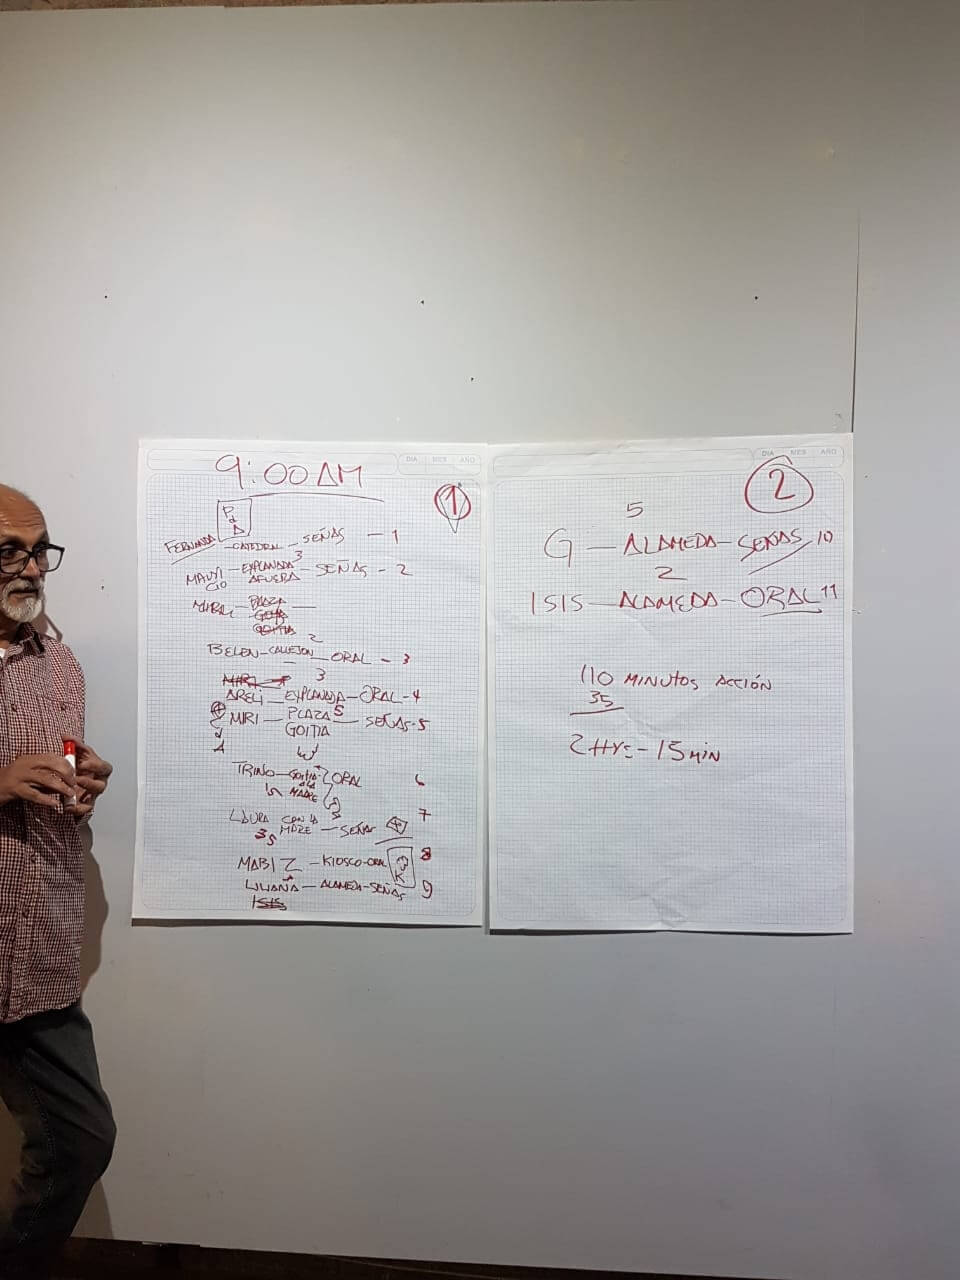 DIA MES AÑO
9:00 AM
1
P d A
FERNANDA - CATEDRAL - SEÑAS - 1
3
MAURICIO - EXPLANADA AFUERA - SEÑAS - 2
PLAZA
GOITIA
2
BELEN - CALLEJON - ORAL - 3
3
ARELI - EXPLANADA - ORAL - 4
MIRI - PLAZA 5 - SEÑAS - 5
GOITIA
TRINO - GOITIA - ORAL 6
MADRE
LAURA CON LA 7
35 MADRE - SEÑAS
MABI Z - KIOSCO - ORAL 8
LILIANA - ALAMEDA - SEÑAS 9
ISIS
DIA MES AÑO
2
5
G - ALAMEDA - SEÑAS 10
2
ISIS - ALAMEDA - ORAL 11
110 MINUTOS ACCIÓN
35
2 Hrs - 15 MIN